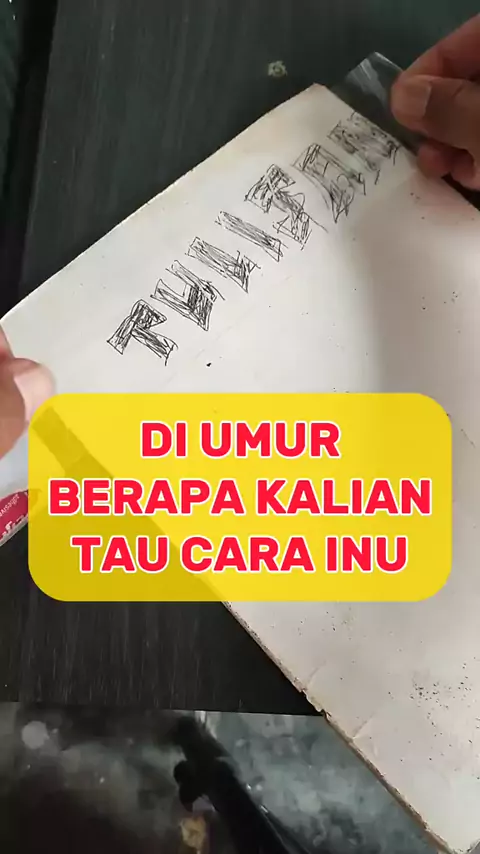 TULISAN
DI UMUR
BERAPA KALIAN
TAU CARA INU